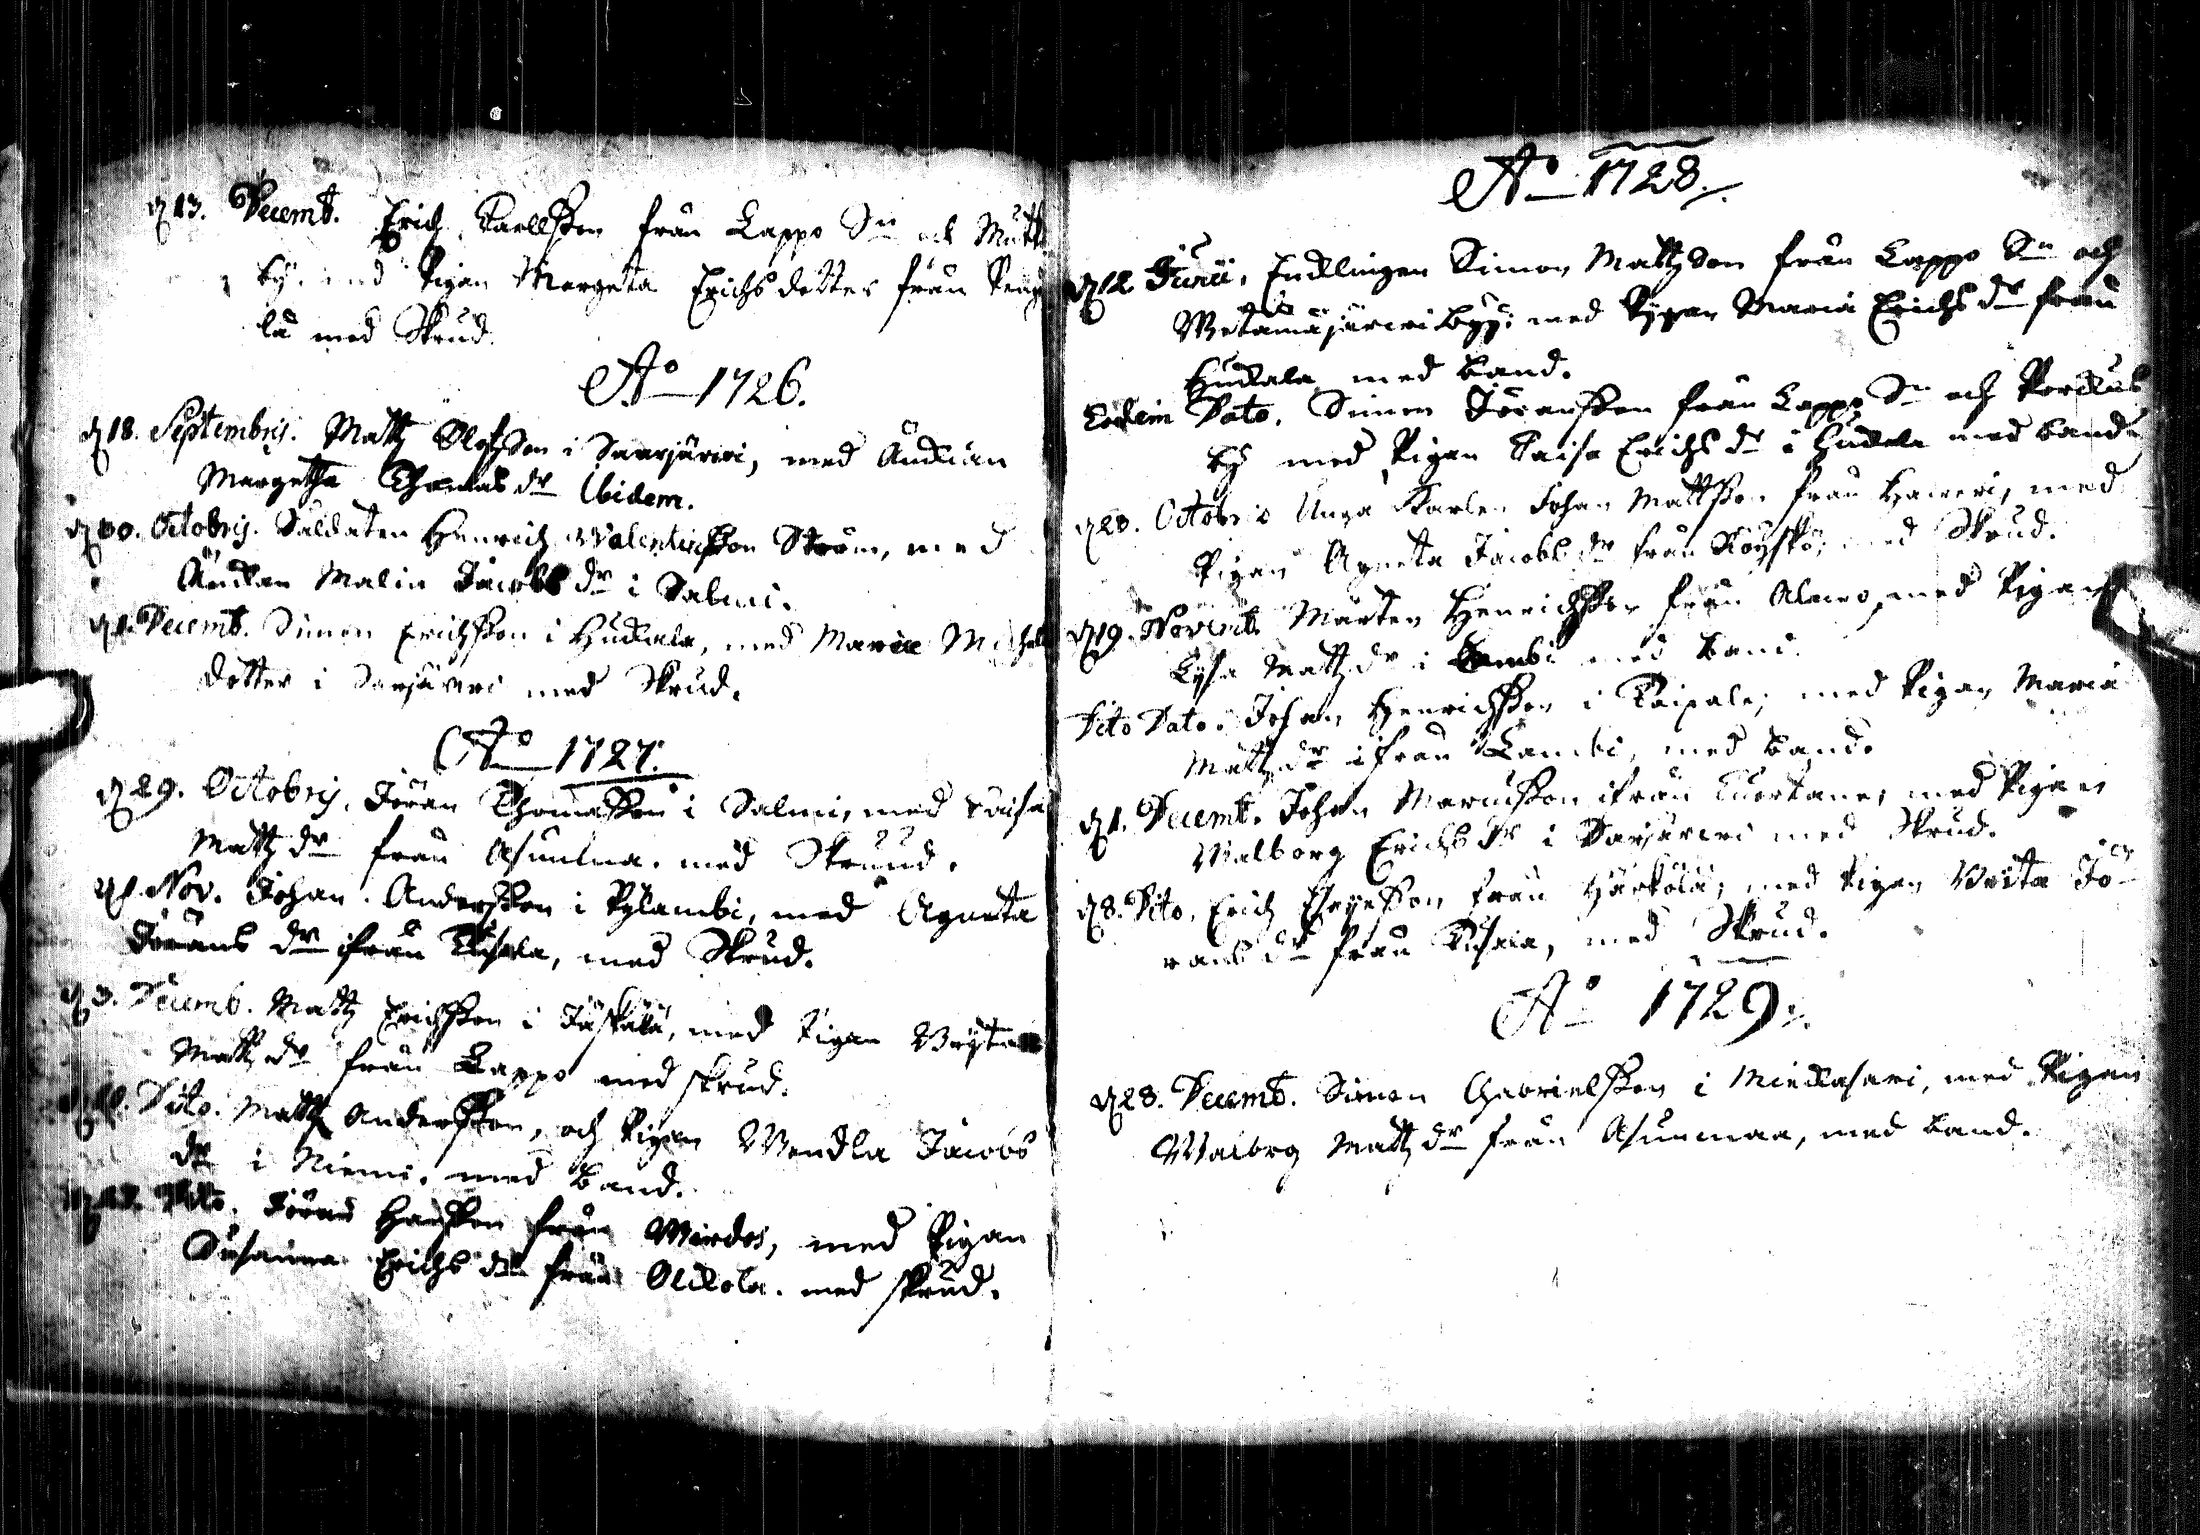 d 13. Decemb. Erich Carllsson från Lappo Sn och
by. med Pigan Margeta Erichsdotter från
la med Skrud.
Ao 1726.
d 18. Septembris. Mattz Olofzson i Saarjärwi, med Änckian
Margetha Thomas dr Ibidem.
d 30. Octobris. Saldaten Henrich Walentinsson Ström, med
Änckan Malin Jacobs dr i Salmi.
Decemb. Simon Erichsson i Hückala, med Maria Michels
dotter i Sarjärwi med Skrud.
Ao 1727.
d 29. Octobris. Jöran Thomasson i Salmi, med Caisa
Mattz dr från Asunma. med Skrud.
Nov. Johan Andersson i Pylambi, med Agneta
Jörans dr ifrån Kisala, med Skrud.
d 3. Decemb. Mattz Erichsson i Jäskälä, med Pigan Bryta
Mattz dr från Lappo med skrud.
Dito. Mattz Andersson, och Pigan Wendla Jacobs
dr i Niemi. med Band.
Dito. Jöran Hansson från Wirdos, med Pigan
Susanna Erichs dr från Olckola. med skrud.
Ao 1728.
d 12 Junii, Encklingen Simon Mattzson från Lappo Sn och
Wetämäjärwi by; med Pigan Maria Erichs dr från
Huckala med Band.
Eodem Dato. Simon Jöransson från Lappo Sn och
by med Pigan Caisa Erichs dr i Huckala med Band.
d 28. Octobris Unga Karlen Johan Mattsson från Haweri, med
Pigan Agneta Jacobs dr från Röyskö, med Skrud.
d 19. Novemb. Mårten Henrichsson från Alawo, med Pigan
Lysa Mattz dr i Lambi med Band.
Dito Dato. Johan Henrichsson i Taipale; med Pigan Maria
Mattz dr ifrån Lambi, med Band.
d 1. Decemb. Johan Marcusson ifrån Cuortane, med Pigan
Walborg Erichs dr i Sarjärwi med Skrud.
d 8. Dito. Erich från Härkölä, med Pigan Brita Jö-
rans dr från Kisala, med Skrud.
Ao 1729.
d 28. Decemb. Simon Gabrielsson i Mieckasari, med Pigan
Walborg Mattz dr från Asunmaa, med Band.